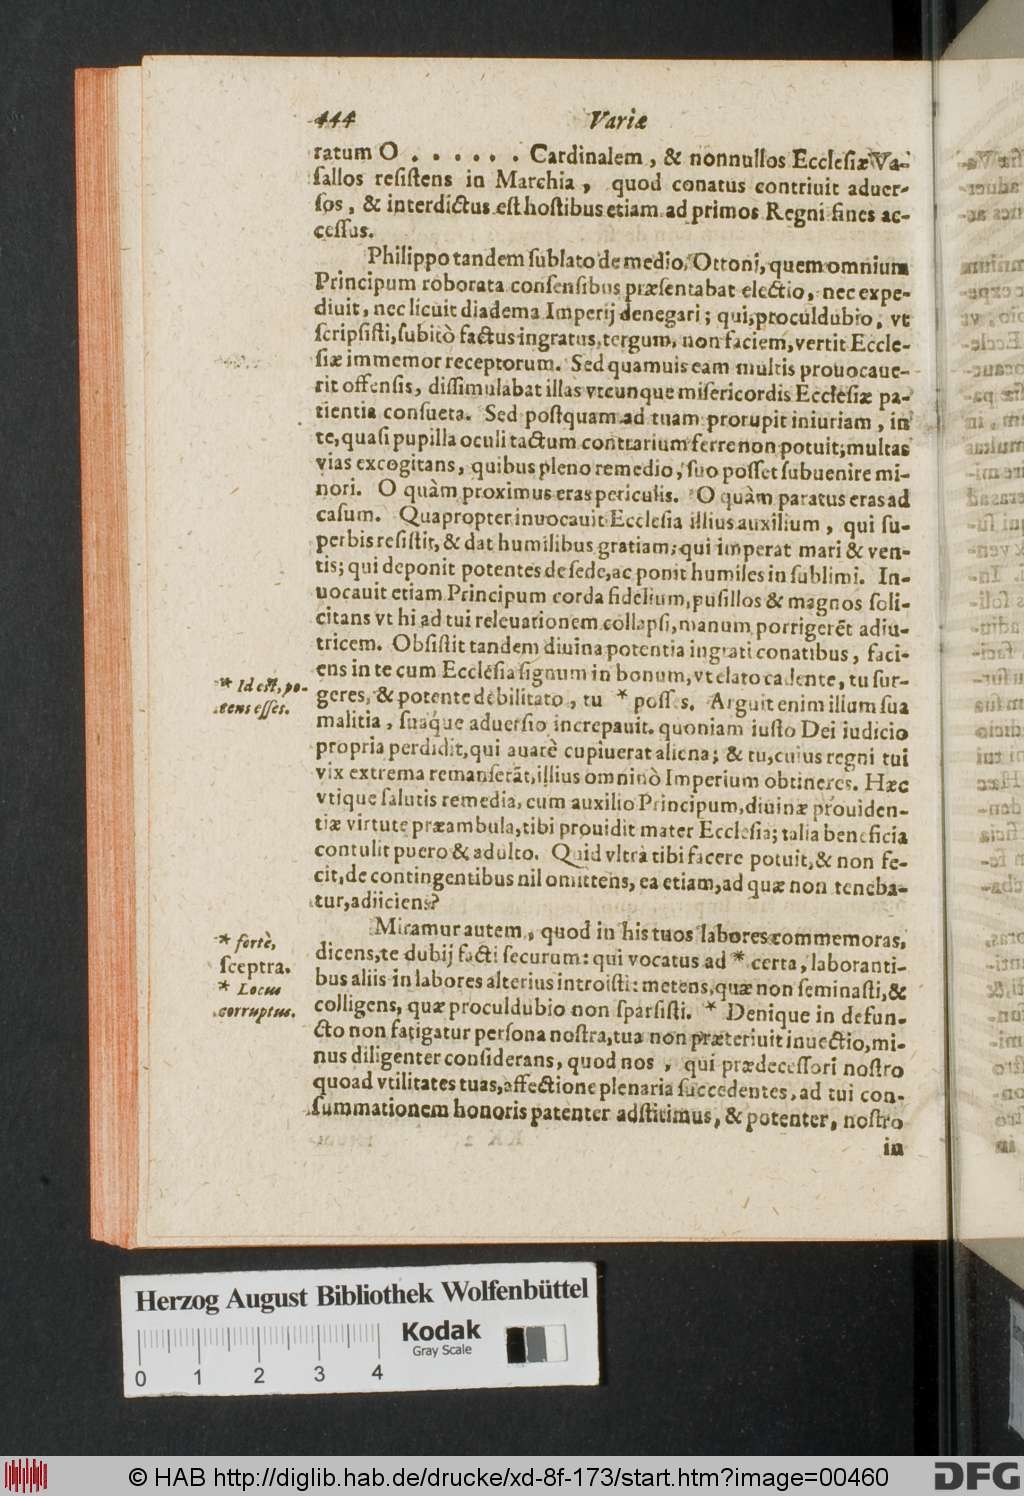 444 Variæ
ratum O . . . . . . Cardinalem, & nonnullos Ecclesiæ Va-
ſallos reſiſtens in Marchia, quod conatus contriuit aduer-
ſos, & interdictus eſt hoſtibus etiam ad primos Regni fines ac-
ceſſus.
Philippo tandem ſublato de medio, Ottoni, quem omnium
Principum roborata conſenſibus præſentabat electio, nec expe-
diuit, nec licuit diadema Imperij denegari; qui, proculdubio, vt
ſcripſiſti, ſubitò factus ingratus, tergum, non faciem, vertit Eccle-
ſiæ immemor receptorum. Sed quamuis eam multis prouocaue-
rit offenſis, diſſimulabat illas vtcunque miſericordis Eccleſiæ pa-
tientia conſueta. Sed poſtquam ad tuam prorupit iniuriam, in
te, quaſi pupilla oculi tactum contrarium ferre non potuit; multas
vias excogitans, quibus pleno remedio, ſuo poſſet ſubuenire mi-
nori. O quàm proximus eras periculis. O quàm paratus eras ad
caſum. Quapropter inuocauit Eccleſia illius auxilium, qui ſu-
perbis reſiſtit, & dat humilibus gratiam; qui imperat mari & ven-
tis; qui deponit potentes de ſede, ac ponit humiles in ſublimi. In-
uocauit etiam Principum corda fidelium, puſillos & magnos ſoli-
citans vt hi ad tui releuationem collapſi, manum porrigerẽt adiu-
tricem. Obſiſtit tandem diuina potentia ingrati conatibus, faci-
ens in te cum Eccleſia ſignum in bonum, vt elato cadente, tu ſur-
geres, & potente debilitato, tu * poſſes. Arguit enim illum ſua
malitia, ſuaque aduerſio increpauit. quoniam iuſto Dei iudicio
propria perdidit, qui auarè cupiuerat aliena; & tu, cuius regni tui
vix extrema remanſerãt, illius omninò Imperium obtineres. Hæc
vtique ſalutis remedia, cum auxilio Principum, diuinæ prouiden-
tiæ virtute præambula, tibi prouidit mater Eccleſia; talia beneficia
contulit puero & adulto. Quid vltrà tibi facere potuit, & non fe-
cit, de contingentibus nil omittens, ea etiam, ad quæ non teneba-
tur, adiiciens?
Miramur autem, quod in his tuos labores commemoras,
dicens, te dubij facti ſecurum: qui vocatus ad * certa, laboranti-
bus aliis in labores alterius introiſti: metens, quæ non ſeminaſti, &
colligens, quæ proculdubio non ſparſiſti. * Denique in defun-
cto non fatigatur perſona noſtra, tua non præteriuit inuectio, mi-
nus diligenter conſiderans, quod nos, qui prædeceſſori noſtro
quoad vtilitates tuas, affectione plenaria ſuccedentes, ad tui con-
ſummationem honoris patenter adſtitimus, & potenter, noſtro
in
* Id eſt, po-
tens eſſes.
* fortè,
ſceptra.
* Locus
corruptus.
Herzog August Bibliothek Wolfenbüttel
Kodak
Gray Scale
0 1 2 3 4
© HAB http://diglib.hab.de/drucke/xd-8f-173/start.htm?image=00460
DFG